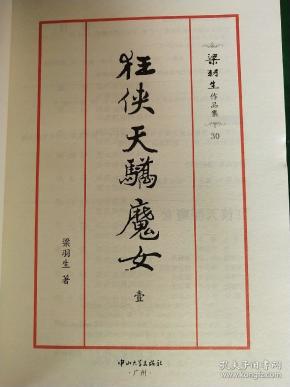 梁羽生
作品集
30
狂侠天骄魔女
壹
梁羽生 著
中山大学出版社
·广州·
孔夫子旧书网